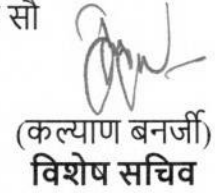 सौ
(कल्याण बनर्जी)
विशेष सचिव